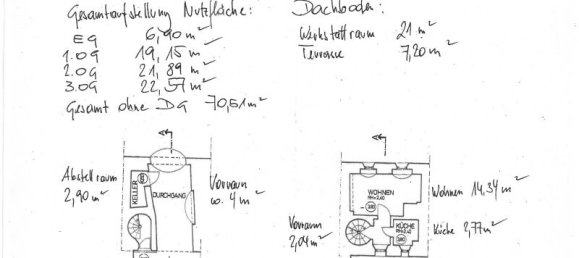 Gesamtaufstellung Nutzfläche:
EG 6,90 m²
1.OG 19,15 m²
2.OG 21,89 m²
3.OG 22,57 m²
Gesamt ohne DG 70,51 m²
Dachboden:
Werkstattraum 21 m²
Terrasse 7,20 m²
Abstellraum
2,90 m²
KELLER
DURCHGANG
Vorraum
4 m²
WOHNEN
Wohnen 14,34 m²
Vorraum
2,04 m²
KÜCHE
Küche 2,77 m²